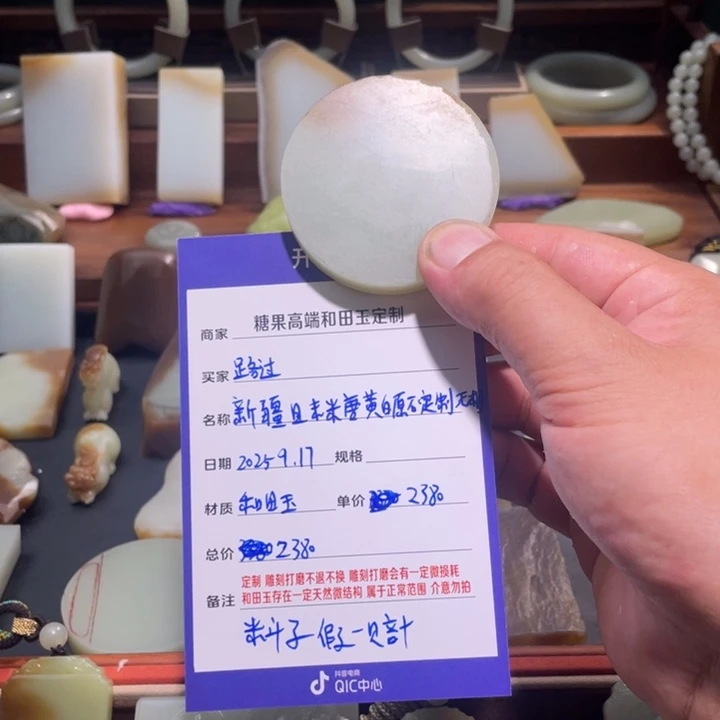 升
商家 糖果高端和田玉定制
买家 路过
名称 新疆且末米粤黄白原石定制无
日期 2025 9.17 规格
材质 和田玉 单价 2380
总价 2380
定制 雕刻打磨不退不换 雕刻打磨会有一定微损耗
备注 和田玉存在一定天然微结构 属于正常范围 介意勿拍
料子 假一
抖音电商
QIC中心